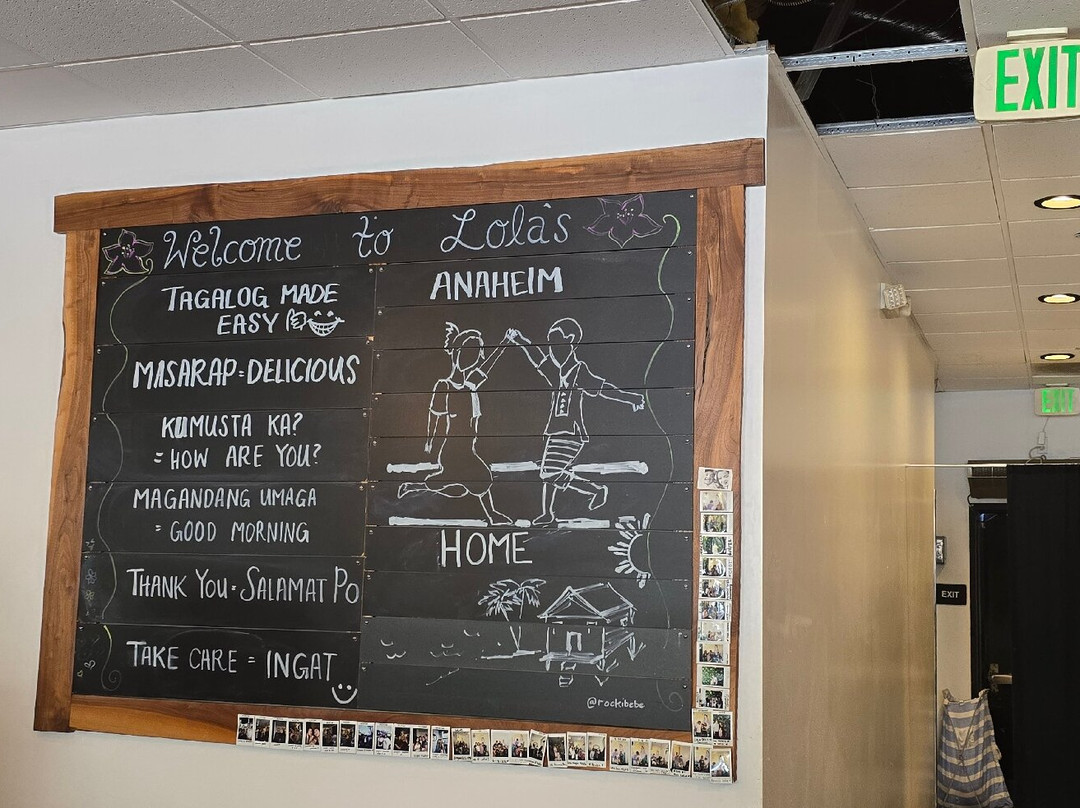 Welcome to Lola's
TAGALOG MADE
EASY
MASARAP=DELICIOUS
KUMUSTA KA?
= HOW ARE YOU?
MAGANDANG UMAGA
= GOOD MORNING
THANK YOU = SALAMAT PO
TAKE CARE = INGAT
ANAHEIM
HOME
@rockibebe
EXIT
EXIT
EXIT